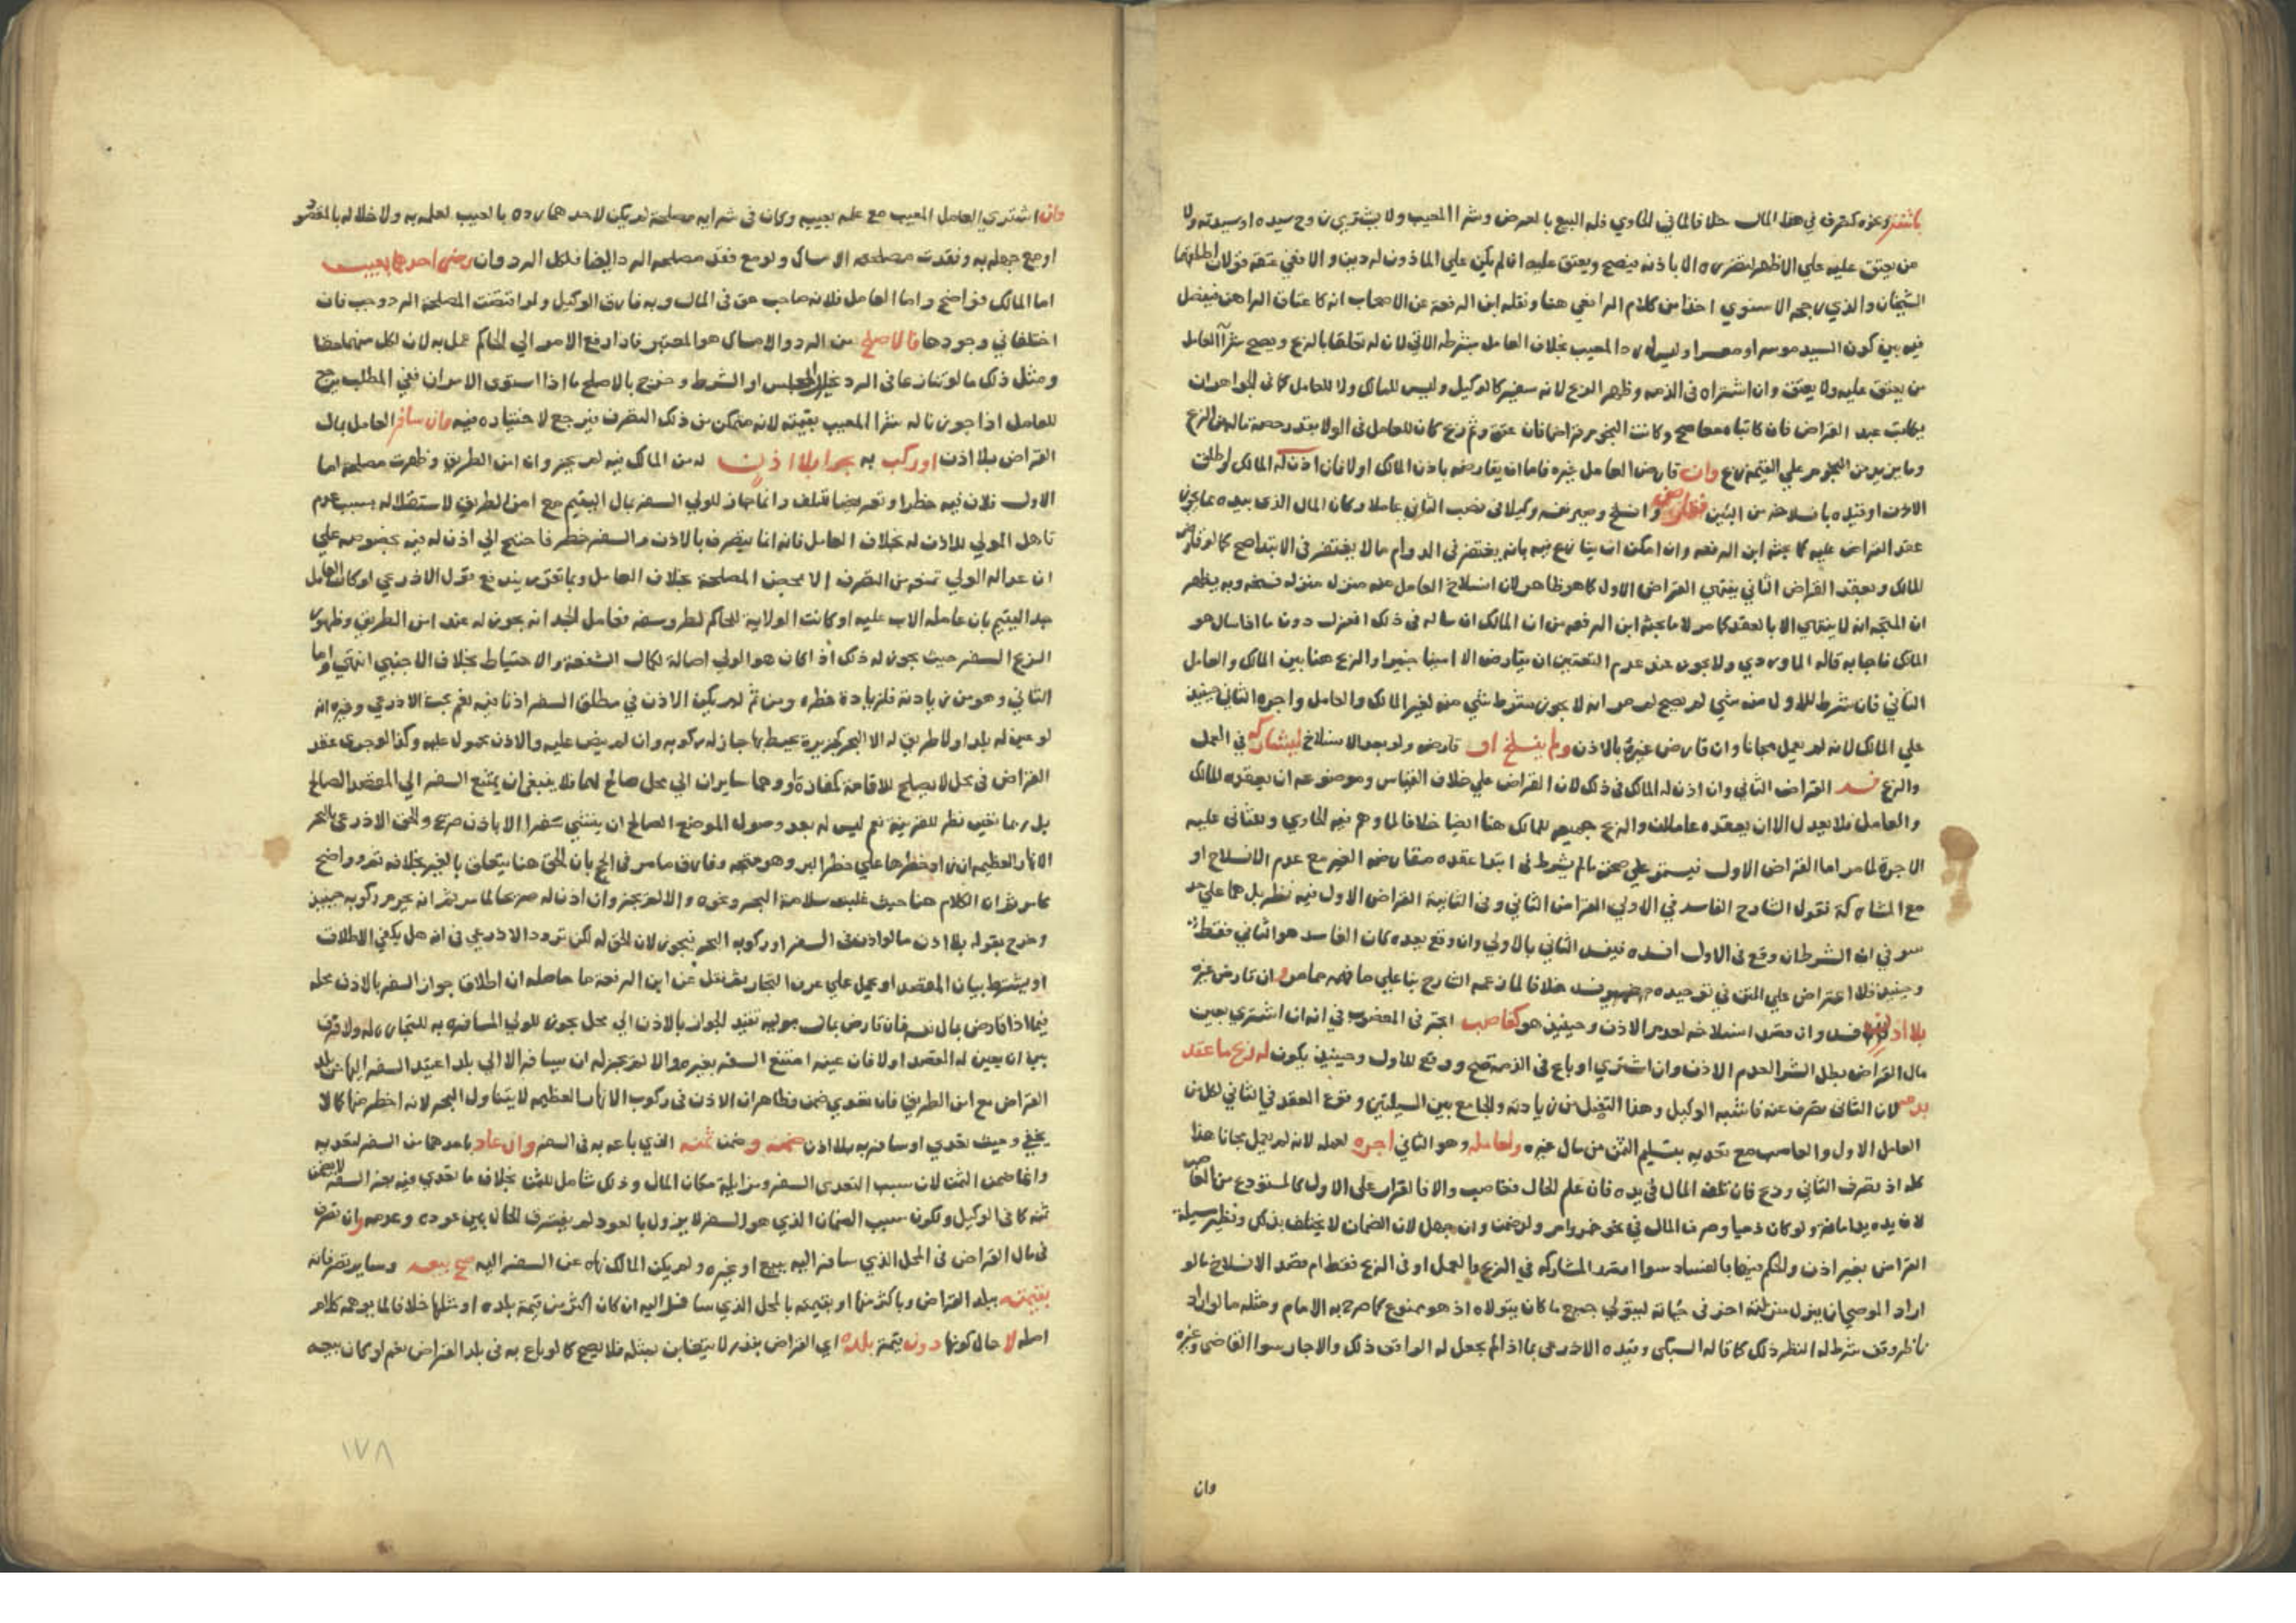 وغيره كتصرف في هذا المال خلافا لما في الحاوي فله البيع بالعرض وشرا المعيب ولا يشتري زوج سيده او سيدته ولا
من يعتق عليه علي الاظهر الا باذنه فيصح ويعتق عليه ان لم يكن علي الماذون له دين والا ففي عتقه قولان اطلقهما
الشيخان والذي رجحه الاسنوي اخذا من كلام الرافعي هنا ونقله ابن الرفعة عن الاصحاب انه كاعتاق الراهن فيفصل
فيه بين كون السيد موسرا او معسرا وليس له رد المعيب بخلاف العامل بشرطه الاتي لان له تعلقا بالربح ويصح شرآ العامل
من يعتق عليه ولا يعتق وان اشتراه في الذمه وظهر الربح لانه سفير كالوكيل وليس للمالك ولا للعامل كما في الجواهر ان
يكاتب عبد القراض فان كاتباه معا صح وكانت النجوم قراضا فان عتق وثم ربح كان للعامل في الولا بقدر حصته من الربح
وما يزيد من النجوم علي القيمة ربح وان قارض العامل غيره فاما ان يقارضه باذن المالك اولا فان اذن له المالك
الاذن او قيده بانسلاخه من البين وانسلخ وصير نفسه وكيلا في نصب الثاني عاملا وكان المال الذي بيده مما يجوز
عقد القراض عليه كما بحثه ابن الرفعه وان امكن ان ينازع فيه بانه يغتفر في الدوام ما لا يغتفر في الابتدا صح كما لو قارض
المالك وبعقد القراض الثاني ينتهي القراض الاول كما هو ظاهر لان انسلاخ العامل منه منزله فسخه وبه يظهر
ان المتجه انه لا ينتهي الا بالعقد كما مر لا ما بحثه ابن الرفعه من ان المالك ان ساله في ذلك انعزل دون ما اذا سال هو
المالك فاجابه قاله الماوردي ولا يجوز عند عدم التعيين ان يقارض الا امينا خبيرا والربح هنا بين المالك والعامل
الثاني فان شرط للاول منه شي لم يصح لما مر انه لا يجوز شرط شي منه لغير المالك والعامل واجره الثاني حينئذ
علي المالك لانه لم يعمل مجانا وان قارض غيره بالاذن ولم ينسلخ او قارضه ولو بعد الانسلاخ ليشاركه في العمل
والربح فسد القراض الثاني وان اذن له المالك في ذلك لان القراض علي خلاف القياس وموضوعه ان يعقده المالك
والعامل فلا يعدل الا ان يعقده عاملان والربح جميعه للمالك هنا ايضا خلافا لما وهم فيه الحاوي وللثاني عليه
الاجرة لما مر اما القراض الاول فيستمر علي صحته ما لم يشرط في ابتدا عقده مقارضه الغير مع عدم الانسلاخ او
مع المشاركة فقول الشارح الفاسد في الاولي القراض الثاني وفي الثانية القراض الاول فيه نظر بل هما علي حد
سوا في ان الشرط ان وقع في الاول افسده فيفسد الثاني بالاولي وان وقع بعده كان الفاسد هو الثاني فقط
وحينئذ فلا اعتراض علي المتن في توحيده ضمير فسد خلافا لما زعمه الشارح بنا علي ما فهمه مما مر وان قارض غيره
بلا اذن فسد وان قصد انسلاخه لعدم الاذن وحينئذ هو كغاصب اتجر في المغصوب في انه ان اشتري بعين
مال القراض بطل الشرا لعدم الاذن وان اشتري او باع في الذمة صح ووقع للاول وحينئذ يكون له ربح ما عقد
بذمه لان الثاني تصرف عنه فاشبه الوكيل وهذا التعليل من زيادته والجامع بين المسيلتين وقوع العقد في الثاني لكل من
العامل الاول والغاصب مع تعديه بتسليم الثمن من مال غيره ولعامله وهو الثاني اجره لعمله لانه لم يعمل مجانا هذا
كله اذ تصرف الثاني وربح فان تلف المال في يده فان علم الحال فغاصب والا فالقرار علي الاول كالمستودع من الغاصب
لان يده يد امانة ولو كان ذميا وصرف المال في نحو خمر وامر ولو ضمن وان جهل لان الضمان لا يختلف بذلك ونظير مسيلة
القراض بغير اذن والحكم فيها بالفساد سوا اقصد المشاركه في الربح والعمل او في الربح فقط ام قصد الانسلاخ ما لو
اراد الوصي ان ينزل منزلته اخر في حياته ليتولي جميع ما كان يتولاه اذ هو ممنوع كما صرح به الامام ومثله ما لو اراد
ناظر وقف شرط له النظر ذلك كما قاله السبكي وقيده الاذرعي بما اذا لم يجعل له الواقف ذلك والا جاز سوا القاضي وغيره
وان
وان اشتري العامل المعيب مع علمه بعيبه وكان في شرايه مصلحة لم يكن لاحدهما رده بالعيب لعلمه به ولاخلاله بالمقصود
او مع جهله به وفقدت مصلحة الامساك ولو مع فقد مصلحه الرد ايضا فلكل الرد وان رضي احدهما بعيبه
اما المالك فواضح واما العامل فلانه صاحب حق في المال وبه فارق الوكيل ولو اقتضت المصلحة الرد وجب فان
اختلفا في وجودها فالاصلح من الرد والامساك هو المعتبر فاذا رفع الامر الي الحاكم عمل به لان لكل منهما حقا
ومثل ذلك ما لو تنازعا في الرد بخيار المجلس او الشرط وخرج بالاصلح ما اذا استوى الامران ففي المطلب يرجع
للعامل اذا جوزنا له شرا المعيب بقيمته لانه متمكن من ذلك التصرف فيرجع لاختياره فيه فان سافر العامل بمال
القراض بلا اذن او ركب به بحرا بلا اذن له من المالك فيه لم يجز وان امن الطريق وظهرت مصلحة اما
الاول فلان فيه خطرا وتعريضا للتلف وانما جاز للولي السفر بمال اليتيم مع امن الطريق لاستقلاله بسبب عدم
تاهل المولي للاذن له بخلاف العامل فانه انما يتصرف بالاذن والسفر خطر فاحتيج الي اذن له فيه بخصوصه علي
ان عدالة الولي تمنعه من التصرف الا بمحض المصلحة بخلاف العامل وبما تقرر يندفع قول الاذرعي لو كان العامل
جد اليتيم بان عامله الاب عليه او كانت الولاية للحاكم لطرو سفه فعامل الجد انه يجوز له عند امن الطريق وظهور
الربح السفر حيث يجوز له ذلك اذ كان هو الولي اصالة لكمال الشفقة والاحتياط بخلاف الاجنبي انتهي واما
الثاني وهو من زيادته فلزيادة خطره ومن ثم لم يكن الاذن في مطلق السفر اذنا فيه نعم بحث الاذرعي وغيره انه
لو عين له بلدا ولا طريق له الا البحر كجزيرة يحيط بها جاز له ركوبه وان لم ينص عليه والاذن محمول عليه وكذا لو جري عقد
القراض في محل لا يصلح للاقامة كمفازة او وهما سايران الي محل صالح لها فلا ينبغي ان يمتنع السفر الي المقصد الصالح
بل ربما يتعين نظر للقرينة نعم ليس له بعد وصول الموضع الصالح ان ينشي سفرا الا باذن صريح والحق الاذرعي بالبحر
الانهار العظيمه ان زاد خطرها علي خطر البر وهو متجه وفارق ما مر في الحج بان الحق هنا يتعلق بالغير بخلافه ثم وواضح
مما مر ثم ان الكلام هنا حيث غلبت سلامة البحر ونحوه والا لم يجز وان اذن له صريحا لما مر ثم انه يحرم ركوبه حينئذ
وخرج بقوله بلا اذن ما لو اذن في السفر او ركوب البحر فيجوز لان الحق له لكن تردد الاذرعي في انه هل يكفي الاطلاق
او يشترط بيان المقصد او يحمل علي عرف التجار ثم نقل عن ابن الرفعة ما حاصله ان اطلاق جواز السفر بالاذن محله
فيما اذا قارض بمال نفسه فان قارض بمال موليه تقيد الجواز بالاذن الي محل يجوز للولي المسافرة به للتجارة له ولا فرق
بين ان يعين له المقصد اولا فان عينه امتنع السفر بغيره والا لم يجز له ان يسافر الا الي بلد اعتيد السفر اليها من بلد
القراض مع امن الطريق فان تعدي ضمن وظاهر ان الاذن في ركوب الانهار العظيمه لا يتناول البحر لانه اخطر منها كما لا
يخفي وحيث تعدي او سافر به بلا اذن ضمنه وضمن ثمنه الذي باعه به في السفر وان عاد باحدهما من السفر لتعديه
وانما ضمن الثمن لان سبب التعدي السفر ومزايلة مكان المال وذلك شامل للثمن بخلاف ما تعدي فيه بغير السفر لا يضمن
ثمنه كما في الوكيل ولكون سبب الضمان الذي هو السفر لا يزول بالعود لم يفترق الحال بين عوده وعدمه وان تصرف
في مال القراض في المحل الذي سافر اليه ببيع او غيره ولم يكن المالك نهاه عن السفر اليه صح بيعه وساير تصرفاته
بقيمته ببلد القراض وباكثر منها او بقيمته بالمحل الذي سافر اليه ان كان اكثر من قيمة بلده او مثلها خلافا لما يوهمه كلام
اصله لا حال كونها دون قيمة بلده اي القراض بقدر لا يتغابن بمثله فلا يصح كما لو باع به في بلد القراض نعم لو كان بيعه
١٧٨